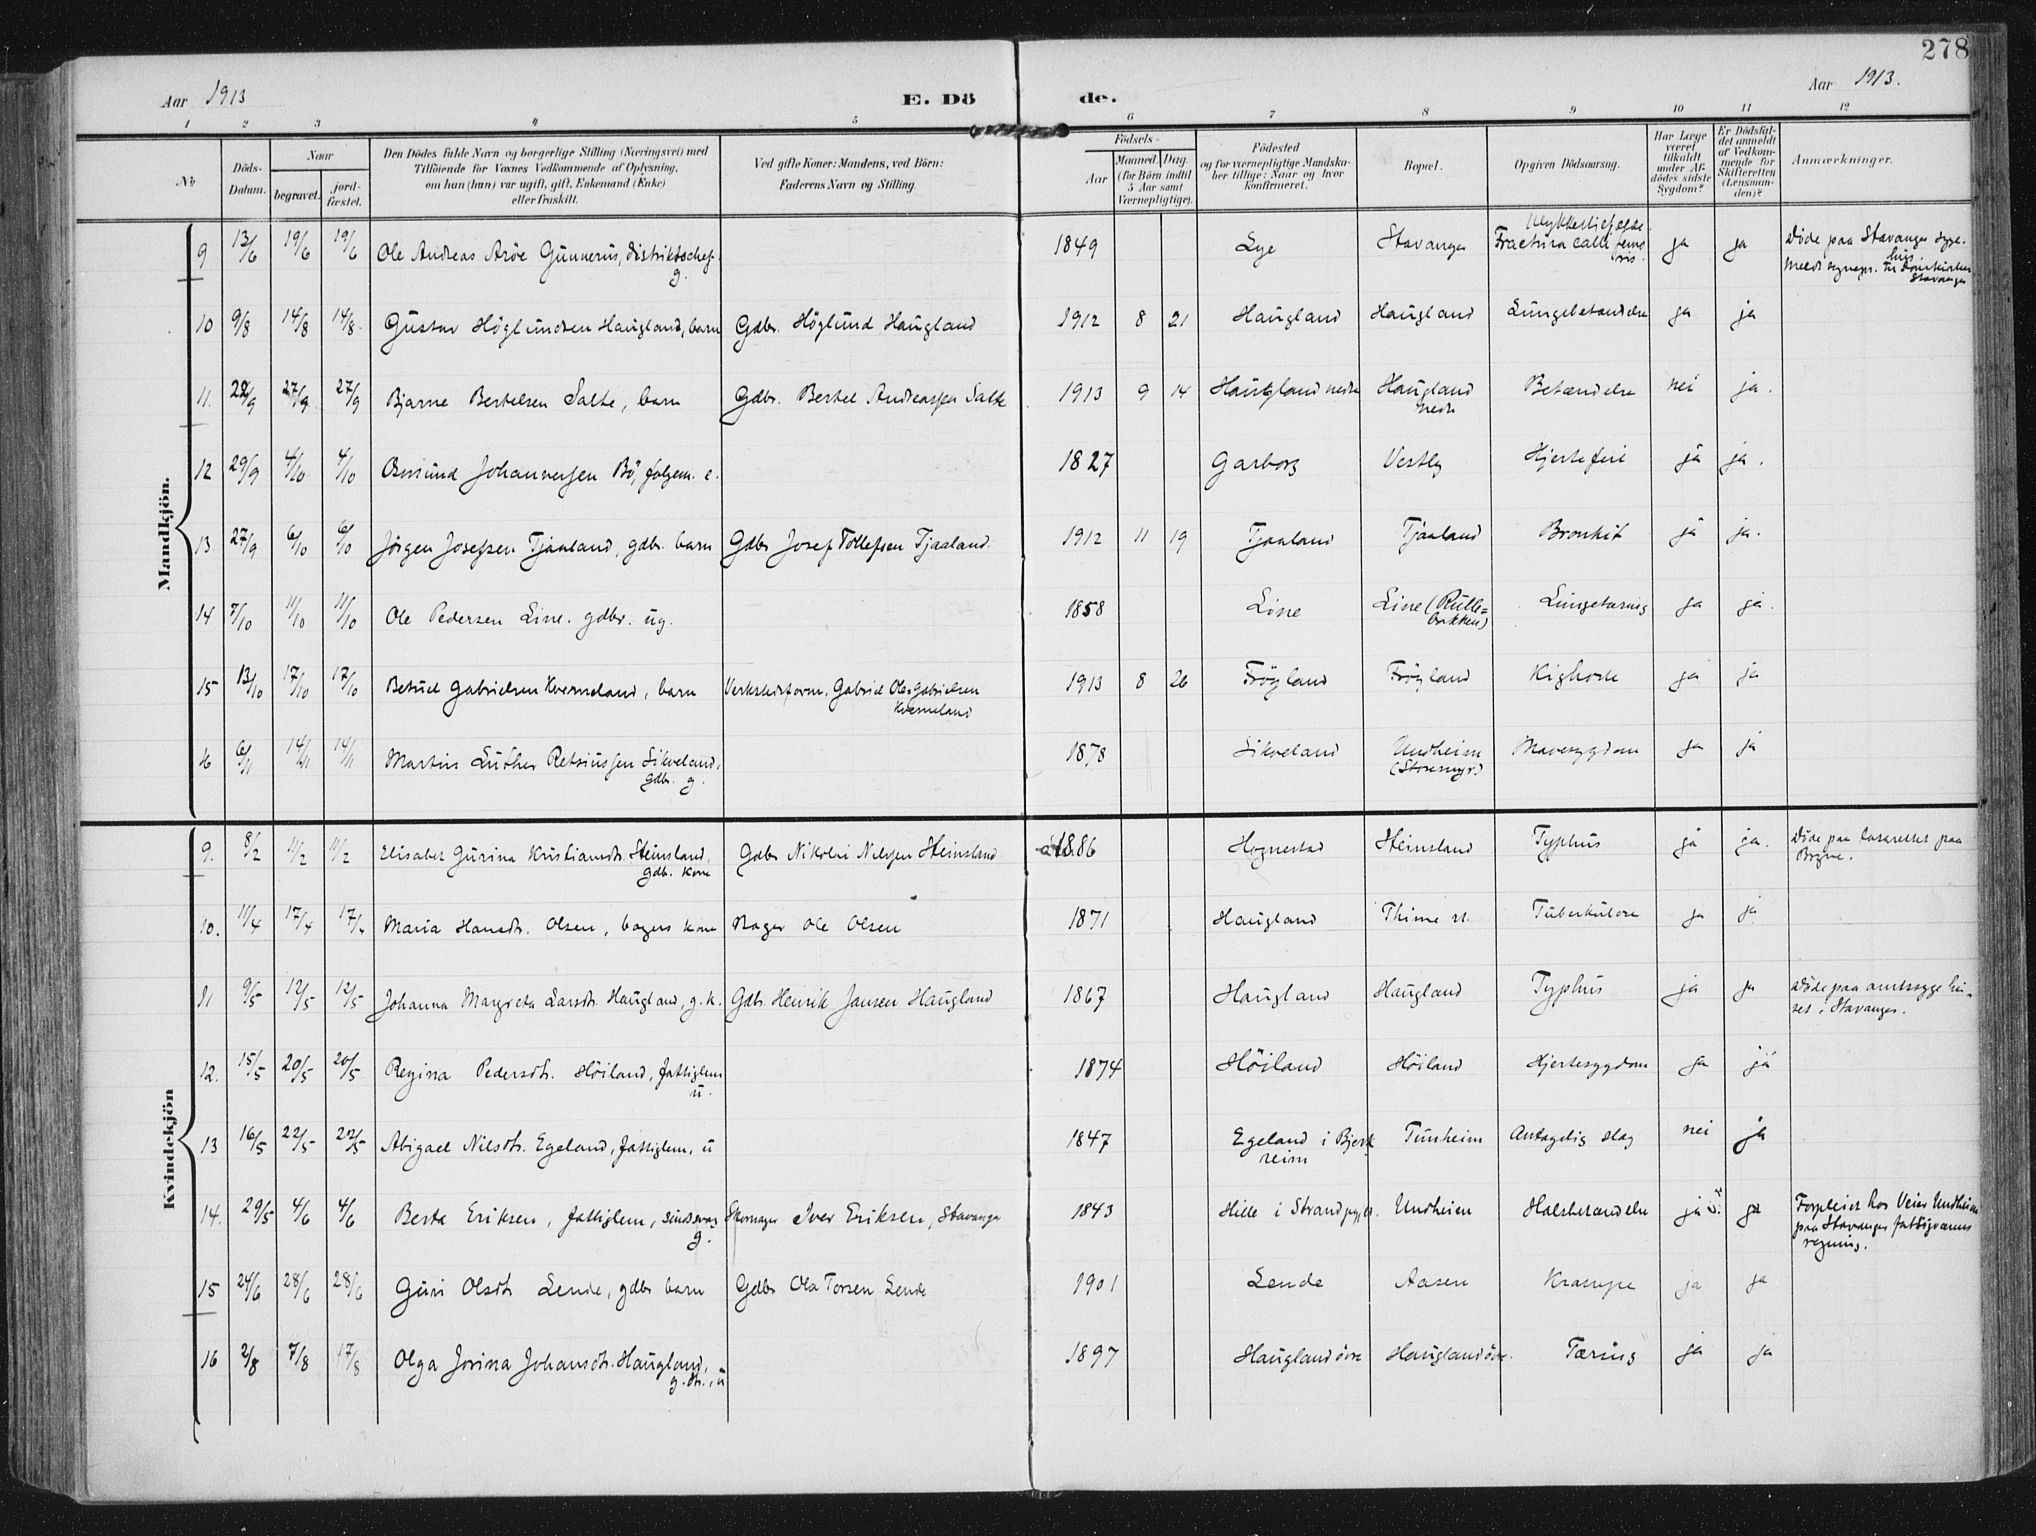 278
Aar 1913
E. Dö de.
Aar 1913.
1 2 3 4 5 6 7 8 9 10 11 12
No
Döds-Datum.
Naar
begravet.
jord-fæstet.
Den Dödes fulde Navn og borgerlige Stilling (Næringsvei) med
Tilföiende for Voxnes Vedkommende af Oplysning,
om han (hun) var ugift, gift, Enkemand (Enke)
eller fraskilt.
Ved gifte Koner: Mandens, ved Börn:
Faderens Navn og Stilling.
Födsels-
Aar
Maaned. Dag.
(for Börn indtil
5 Aar samt
Værnepligtige).
Födested
og for værnepligtige Mandska-
ber tillige: Naar og hvor
konfirmeret.
Bopæl.
Opgiven Dödsaarsag.
Har Læge
været
tilkaldt
under Af-
dödes sidste
Sygdom?
Er Dödsfal-
det anmeldt
af Vedkom-
mende for
Skifteretten
(Lensman-
den)?
Anmærkninger.
Mandkjön.
9 13/6 19/6 19/6 Ole Andreas Aröe Gunnerus, distriktschef. g. 1849 Lye Stavanger Ulykkestilfælde. Fractura colli femoris. ja ja Döde paa Stavanger syge-hus. Meldt sognepr. til Domkirken Stavanger
10 9/8 14/8 14/8 Gustav Höglundsen Haugland, barn Gdbr. Höglund Haugland 1912 8 21 Haugland Haugland Lungebetændelse ja ja
11. 22/9 27/9 27/9 Bjarne Bertelsen Salte, barn Gdbr. Bertel Andreassen Salte 1913 9 14 Haugland nedre Haugland nedre Betændelse nei ja.
12 29/9 4/10 4/10 Osmund Johannessen Bö, folgem. e. 1827 Garborg Vestly Hjertefeil ja ja.
13 27/9 6/10 6/10 Jörgen Josefsen Tjaaland, gdbr. barn Gdbr Josef Tollefsen Tjaaland. 1912 11 19 Tjaaland Tjaaland Bronkit ja ja.
14 7/10 11/10 11/10 Ole Pedersen Line. gdbr. ug. 1858 Line Line (Rullebakken) Lungetæring ja ja.
15 13/10 17/10 17/10 Betuel Gabrielsen Kverneland, barn Verkstedform. Gabriel Ole Gabrielsen Kverneland 1913 8 26 Fröyland Fröyland Kighoste ja ja
16 6/11 14/11 14/11 Martin Luther Retsiussen Sikveland, gdbr. g. 1878 Sikveland Undheim (Storemyr.) Mavesygdom ja ja
Kvindekjön
9. 8/2 11/2 11/2 Elisabet Gurina Kristiansdtr. Steinsland, gdb. kone Gdbr Nikolai Nilssen Steinsland 1886 Hognestad Steinsland Typhus ja ja. Döde paa lasarettet paa Bryne.
10. 11/4 17/4 17/4 Maria Hansdtr. Olsen, bagers kone Bager Ole Olsen 1871 Haugland Thime st. Tuberkulose ja ja
11 9/5 12/5 12/5 Johanna Margreta Larsdtr. Haugland, g. k. Gdb. Henrik Jansen Haugland 1867 Haugland Haugland Typhus ja ja Döde paa amtssygehu-set i Stavanger.
12. 15/5 20/5 20/5 Regina Pedersdtr. Höiland, fattiglem u. 1874 Höiland Höiland Hjertesygdom ja ja
13 16/5 22/5 22/5 Abigael Nilsdtr. Egeland, fattiglem, u 1847 Egeland i Bjerkreim Tunheim Antagelig slag nei ja
14. 29/5 4/6 4/6 Berta Eriksen, fattiglem, sindssvag g. Skomager Iver Eriksen, Stavanger 1843 Hille i Strand Undheim Halsbetændelse ja ja Forpleiet hos Undheim paa Stavanger fattigvæsens regning.
15 24/6 28/6 28/6 Guri Olsdtr Lende, gdbr barn Gdbr Ola Torsen Lende 1901 Lende Aasen Krampe ja ja
16 2/8 7/8 17/8 Olga Jorina Johansdtr. Haugland, g. dtr., u 1897 Haugland övre Haugland övre. Tæring ja ja